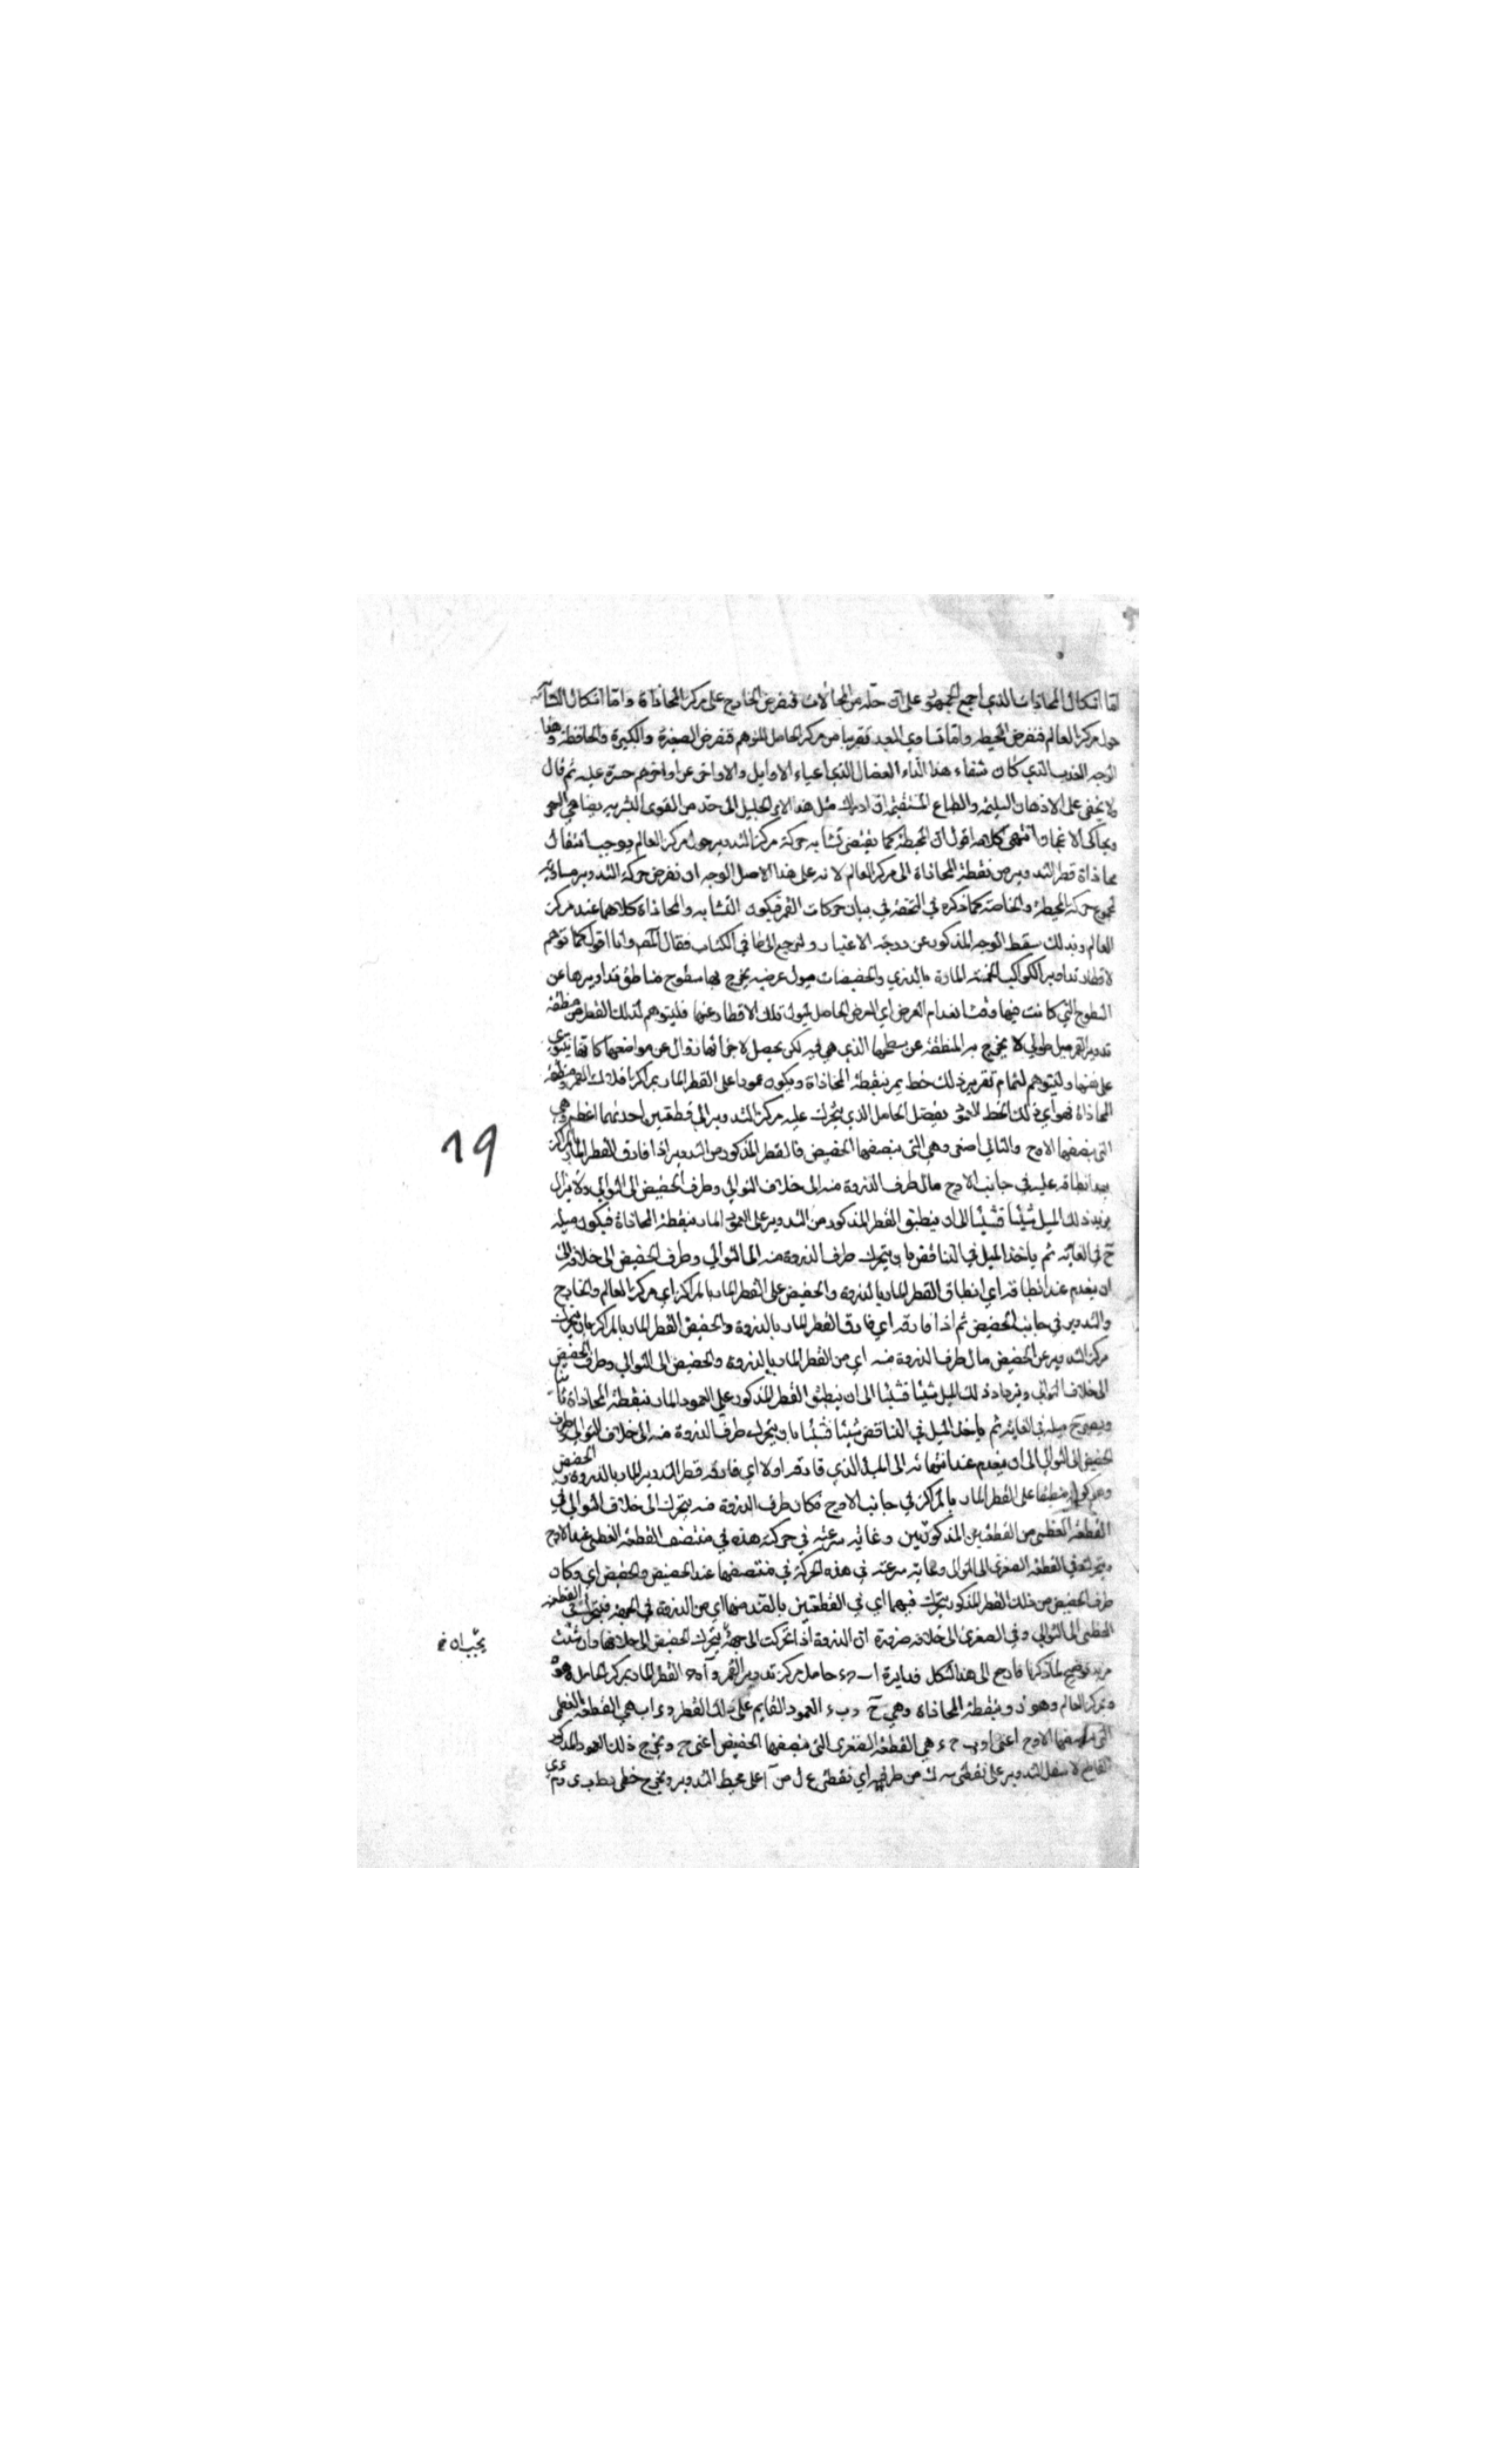 اما اشكال المحاذات الذي اجمع الجمهور على ان حله من المحالات فبفرض الخارج على مركز المحاذاة واما اشكال التشابه
حول مركز العالم فبفرض المحيطة واما تساوي البعد تقريبا من مركز الحامل المتوهم فبفرض الصغيرة والكبيرة والحافظة وهذا
الوجه القريب الذي كان شفاء هذا الداء العضال الذي اعياء الاوايل والاواخر عن اواخرهم حسرة عليه ثم قال
ولا يخفى على الاذهان السليمة والطباع المستقيمة ان ادراك مثل هذا الامر الجليل الى حد من القوى البشريه يضاهي الوحي
ويحاكى الاعجاز انتهى كلامه اقول ان المحيطة كما يقتضي تشابه حركة مركز التدوير حول مركز العالم يوجب انتقال
محاذاة قطر التدوير من نقطة المحاذاة الى مركز العالم لانه على هذا الاصل الوجه ان نفرض حركة التدوير مساويه
لمجموع حركة المحيطة والخاصة كما ذكره في التحفة في بيان حركات القمر فيكون التشابه والمحاذاة كلاهما عند مركز
العالم وبذلك سقط الوجه المذكور عن درجة الاعتبار ولنرجع الى ما في الكتاب فقال المصـ وانا اقول كما توهم
لاقطار تداوير الكواكب الخمسة المارة بالذرى والحضيضات ميول عرضيه يخرج بها سطوح مناطق تداويرها عن
السطوح التي كانت فيها وقت انعدام العرض اي العرض الحاصل لميول تلك الاقطار عنها فليتوهم لذلك القطر من منطقة
تدوير القمر ميل طولي لا يخرج به المنطقة عن سطحها الذي هي فيه لكن يحصل لاجزائها زوال عن مواضعها كانها يلتوي
على نفسها وليتوهم لتمام تقرير ذلك خط يمر بنقطة المحاذاة ويكون عمودا على القطر المار بمراكز افلاك القمر ونقطة
المحاذاة فهو اي ذلك الخط لا محـ يفصل الحامل الذي يتحرك عليه مركز التدوير الى قطعتين احديهما اعظم وهي
التي ينصفها الاوج والثاني اصغر وهي التي ينصفها الحضيض فالقطر المذكور من التدوير اذا فارق القطر المار بالمراكز
بعد انطباقه عليه في جانب الاوج مال طرف الذروة منه الى خلاف التوالي وطرف الحضيض الى التوالي ولا يزال
يزيد ذلك الميل شيئا فشيئا الى ان ينطبق القطر المذكور من التدوير على العمود المار بنقطة المحاذاة فيكون ميله
ح في الغاية ثم ياخذ الميل في التناقص ما ويتحرك طرف الذروة منه الى التوالي وطرف الحضيض الى خلافه الى
ان ينعدم عند انطباقه اي انطباق القطر المار بالذروة والحضيض على القطر المار بالمراكز اي مركز العالم والخارج
والتدوير في جانب الحضيض ثم اذا فارقه اي فارق القطر المار بالذروة والحضيض القطر المار بالمراكز بان يتحرك
مركز التدوير عن الحضيض مال طرف الذروة منه اي من القطر المار بالذروة والحضيض الى التوالي وطرف الحضيض
الى خلاف التوالي ويزداد ذلك الميل شيئا فشيئا الى ان ينطبق القطر المذكور على العمود المار بنقطة المحاذاة ثانيا
ويصير ح ميله في الغاية ثم ياخذ الميل في التناقص شيئا فشيئا ما ويتحرك طرف الذروة منه الى خلاف التوالي وطرف
الحضيض الى التوالي الى ان ينعدم عند انتهائه الى المبدأ الذي فارقه اولا اي فارقه قطر التدوير المار بالذروة والحضيض
منطبقا على القطر المار بالمراكز في جانب الاوج فكان طرف الذروة منه يتحرك الى خلاف التوالي في
القطعة العظمى من القطعتين المذكورتين وغاية سرعته في حركته هذه في منتصف القطعة العظمى عند الاوج
ويتحرك في القطعة الصغرى الى التوالي وغاية سرعته في هذه الحركة في منتصفها عند الحضيض والحضيض اي وكان
طرف الحضيض من ذلك القطر المذكور يتحرك فيهما اي في القطعتين بالضد منها اي من الذروة في الجهة فيتحرك في القطعة
العظمى الى التوالي وفي الصغرى الى خلافه ضرورة ان الذروة اذا تحركت الى جهة يتحرك الحضيض الى خلافها وان شئت
يجب ان
مزيد توضيح لما ذكرنا فارجع الى هذا الشكل فدايرة حامل مركز تدوير القمر القطر المار بمركز الحامل
ومركز العالم وهو ونقطة المحاذاة وهي ح العمود القايم على ذلك القطر هي القطعة العظمى
التي ينصفها الاوج اعني هي القطعة الصغرى التي ينصفها الحضيض اعني ونخرج ذلك العمود المذكور
القاطع لاسفل التدوير على نقطتي من طرفيه اي نقطتي على محيط التدوير ونخرج خطي
19